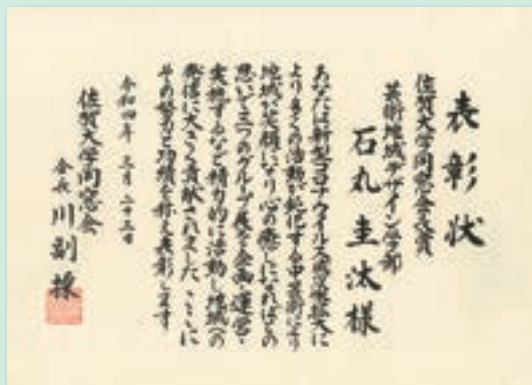 表彰状
佐賀大学同窓会会長賞
芸術地域デザイン学部
石丸圭汰様
あなたは新型コロナウイルス感染拡大に
より多くの活動が鈍化する中芸術により
地域が笑顔になり心の癒しになればとの
思いで三つのグループ展を企画・運営・
実施するなど精力的に活動し地域への
発信に大きく貢献されました ここに
その努力と功績を称え表彰します
令和四年 三月 二十三日
佐賀大学同窓会
会長 川副 操